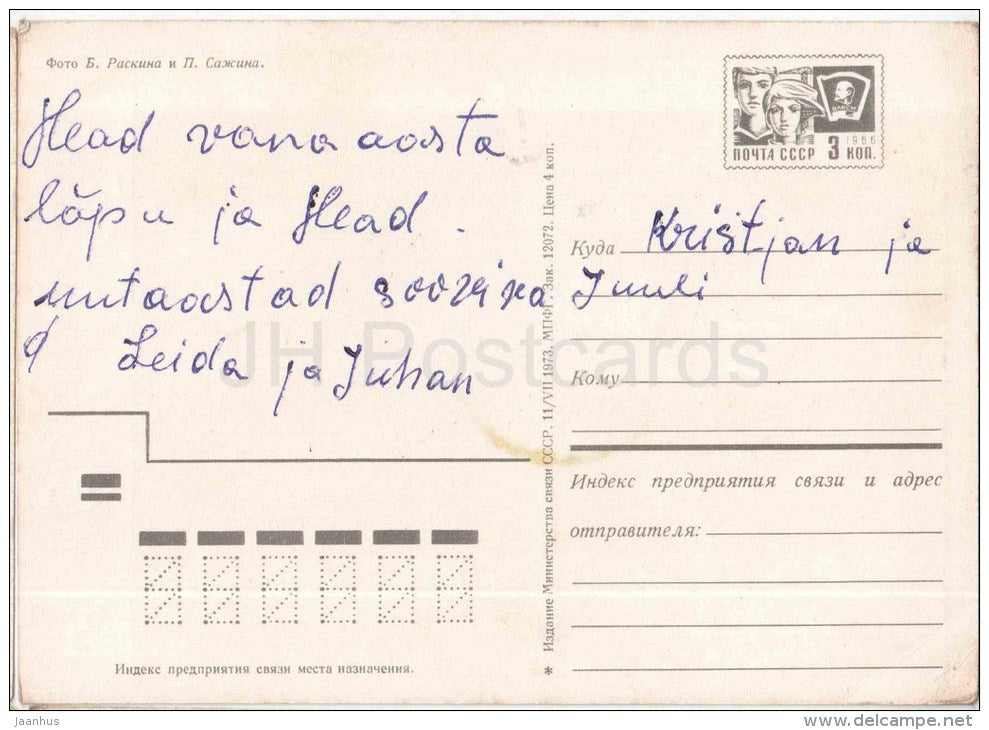 Фото Б. Раскина и П. Сажина.
Head vana aasta
lõpu ja Head
uutaastad soovivad
Leida ja Juhan
ПОЧТА СССР 3 КОП.
1966
Издание Министерства связи СССР. 11/VII 1973. МПФГ. Зак. 12072. Цена 4 коп.
Куда Kristjan ja
Juuli
Кому
Индекс предприятия связи и адрес
отправителя:
Индекс предприятия связи места назначения.
*
JH Postcards
jaanhus
www.delcampe.net